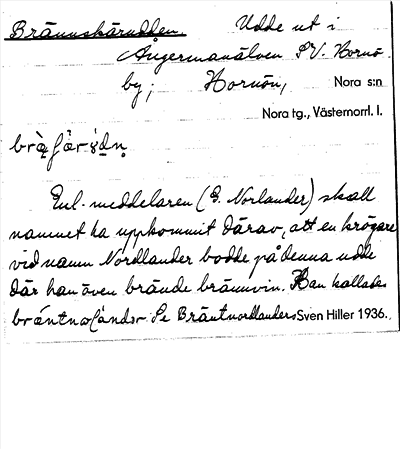 Brännskärudden. Udde ut i
Ångermanälven S.V. Hornö
by; Hornön, Nora s:n
Nora tg., Västernorrl. l.
Enl. meddelaren (E. Norlander) skall
namnet ha uppkommit därav, att en krögare
vid namn Nordlander bodde på denna udde
där han även brände brännvin. Han kallades
Se Bräntnordlanders Sven Hiller 1936.